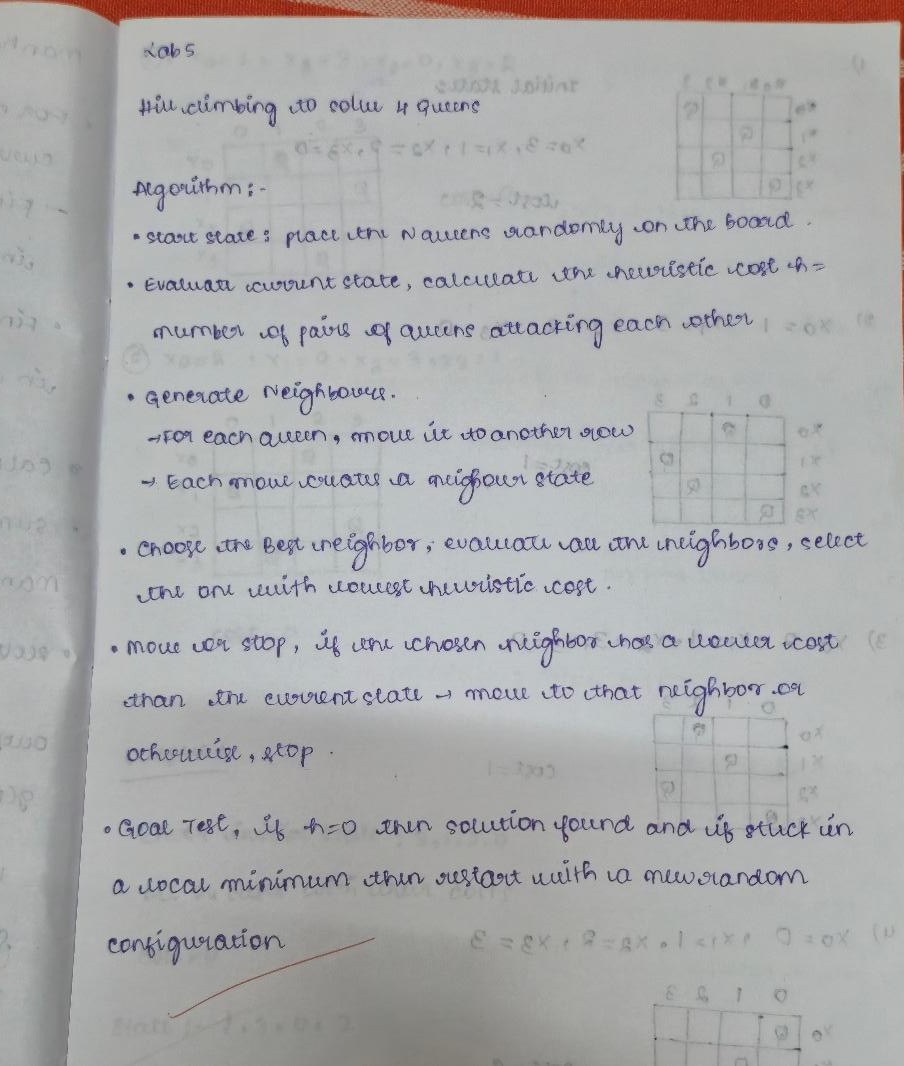 Lab 5
Hill climbing to solve 4 Queens
Algorithm :-
• Start state : place the N Queens randomly on the Board .
• Evaluate current state, calculate the heuristic cost h =
number of pairs of queens attacking each other
• Generate Neighbours.
→ For each queen, move it to another row
→ Each move creates a neighour state
• Choose the Best neighbor, evaluate all the neighbors, select
the one with lowest heuristic cost .
• Move or stop, if the chosen neighbor has a lower cost
than the current state → move to that neighbor or
otherwise, stop .
• Goal Test, if h=0 then solution found and if stuck in
a local minimum then restart with a new random
configuration